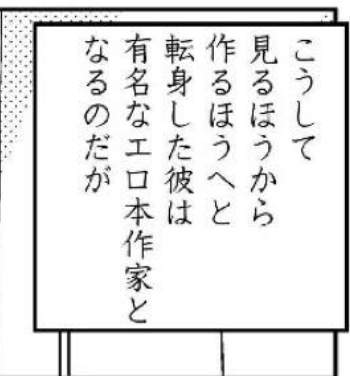 こうして
見るほうから
作るほうへと
転身した彼は
有名なエロ本作家と
なるのだが